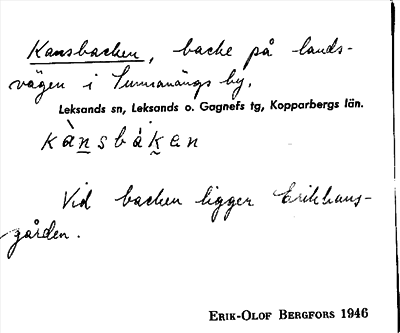 Kansbacken, backe på lands-
vägen i Sunnanängs by.
Leksands sn, Leksands o. Gagnefs tg, Kopparbergs län.
kànsbákan
Vid backen ligger Erikhans-
gården.
ERIK-OLOF BERGFORS 1946